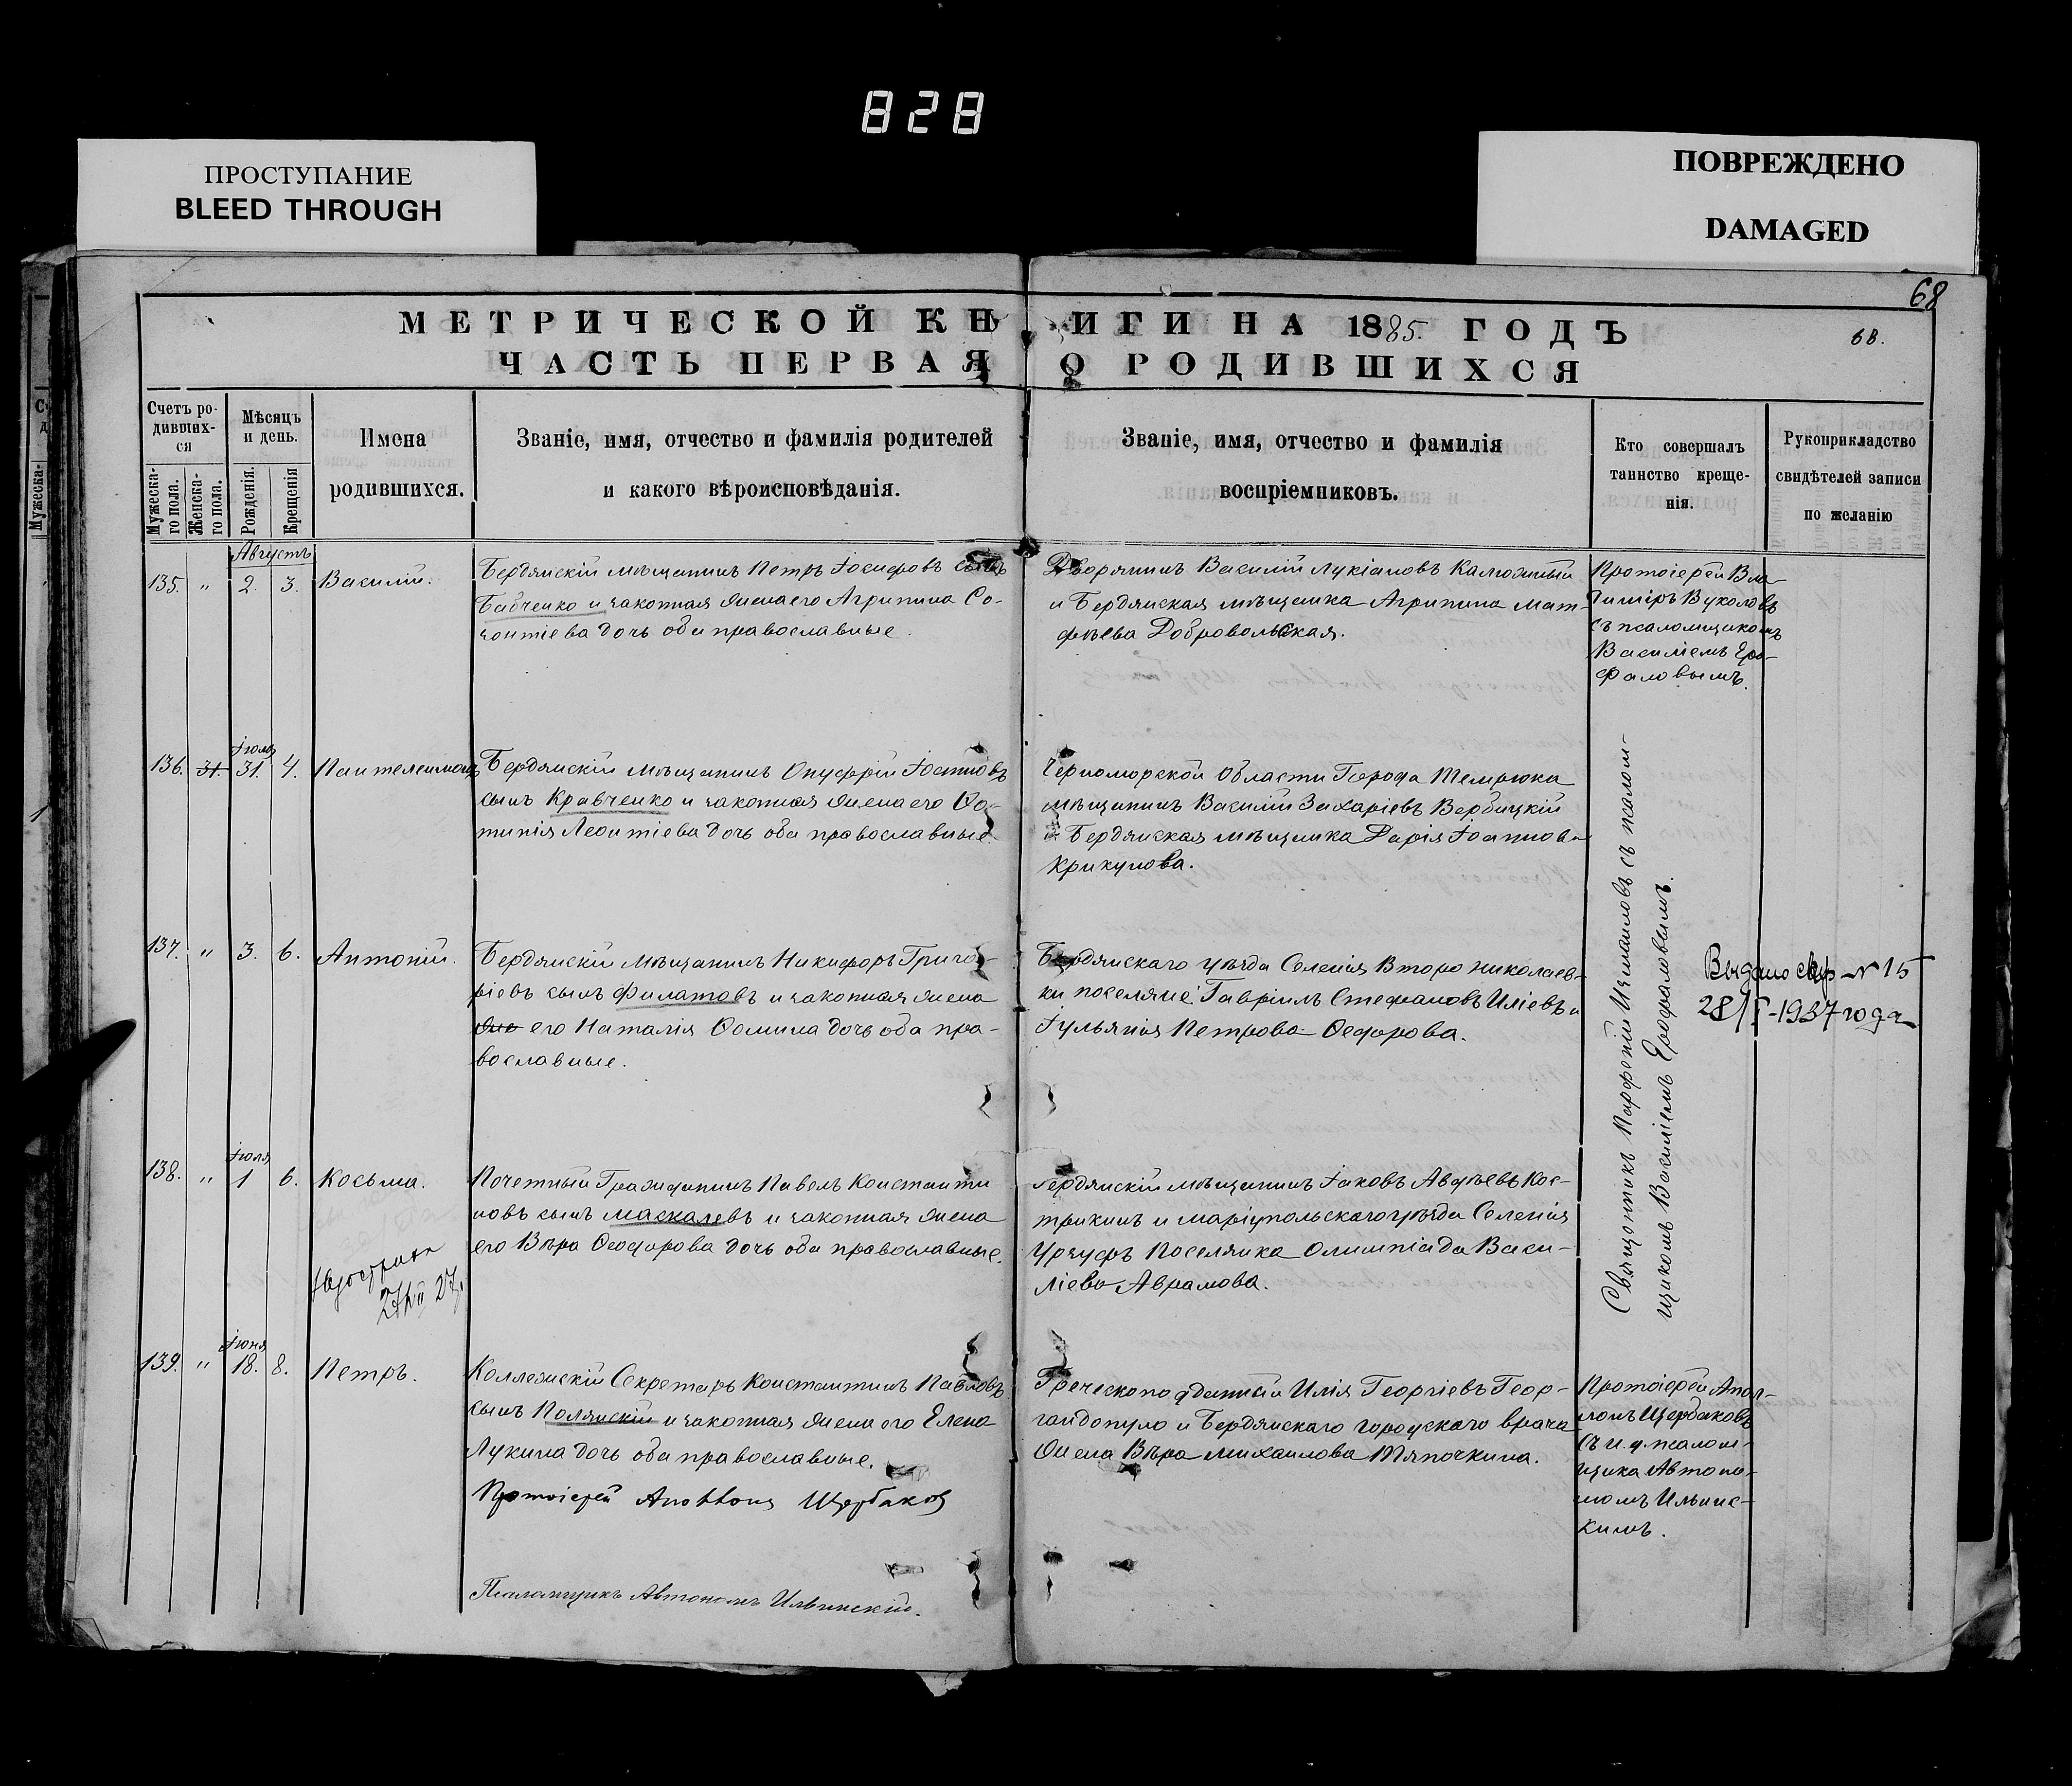 828
ПРОСТУПАНИЕ
BLEED THROUGH
ПОВРЕЖДЕНО
DAMAGED
68
68.
МЕТРИЧЕСКОЙ КНИГИ НА 1885. ГОДЪ
ЧАСТЬ ПЕРВАЯ О РОДИВШИХСЯ
Счетъ ро-
дивших-
ся
Мужеска-
го пола.
Женска-
го пола.
Мѣсяцъ
и день.
Рожденія.
Крещенія
Имена
родившихся.
Званіе, имя, отчество и фамилія родителей
и какого вѣроисповѣданія.
Званіе, имя, отчество и фамилія
воспріемниковъ.
Кто совершалъ
таинство креще-
нія.
Рукоприкладство
свидѣтелей записи
по желанію
Мужеска-
Августъ
135. " 2. 3. Василій.
Бердянскій мѣщанинъ Петръ Іосифовъ сынъ
Бабченко и законная жена его Агрипина Со-
зонтіева дочь оба православные.
Дворянинъ Василій Лукіановъ Калюжный
и Бердянская мѣщанка Агрипина Мат-
фѣева Добровольская.
Протоіерей Вла-
диміръ Вуколовъ
съ псаломщикомъ
Василіемъ Еро-
фаловымъ.
Іюля
136. 31. 31. 4. Пантелеимонъ
Бердянскій мѣщанинъ Онуфрій Іоанновъ
сынъ Кравченко и законная жена его Фо-
тинія Леонтіева дочь оба православные.
Черноморской области Города Темрюка
мѣщанинъ Василій Захаріевъ Вербицкій
и Бердянская мѣщанка Дарія Іоаннова
Крикунова.
137. " 3. 6. Антоній.
Бердянскій мѣщанинъ Никифоръ Григо-
ріевъ сынъ Филатовъ и законная жена
его Наталія Фомина дочь оба пра-
вославные.
Бердянскаго уѣзда Селенія Второ Николаев-
ки поселяне Гавріилъ Стефановъ Иліевъ и
Іульянія Петрова Федорова.
Священникъ Парфеній Измаиловъ съ псалом-
щикомъ Василіемъ Ерофаловымъ.
Выдано свид № 15
28/I-1937 года
Іюля
138. " 1 6. Косьма.
Почетный Гражданинъ Павелъ Константи
новъ сынъ Маскалевъ и законная жена
его Вѣра Феодорова дочь оба православные.
Бердянскій мѣщанинъ Іаковъ Авдѣевъ Кос-
трикинъ и маріупольскаго уѣзда Селенія
Урзуфъ Поселянка Олимпіада Васи-
ліева Аврамова.
Іюня
139. " 18. 8. Петръ.
Коллежскій Секретарь Константинъ Павловъ
сынъ Полянскій и законная жена его Елена
Лукина дочь оба православные.
Греческоподданный Илія Георгіевъ Геор-
гандопуло и Бердянскаго городскаго врача
жена Вѣра Михаилова Тяпочкина.
Протоіерей Апол-
лонъ Щербаковъ
съ и.д. псалом-
щика Автоно-
момъ Ильинс-
кимъ.
Протоіерей Аполлонъ Щербаковъ
Псаломщикъ Автономъ Ильинскій.